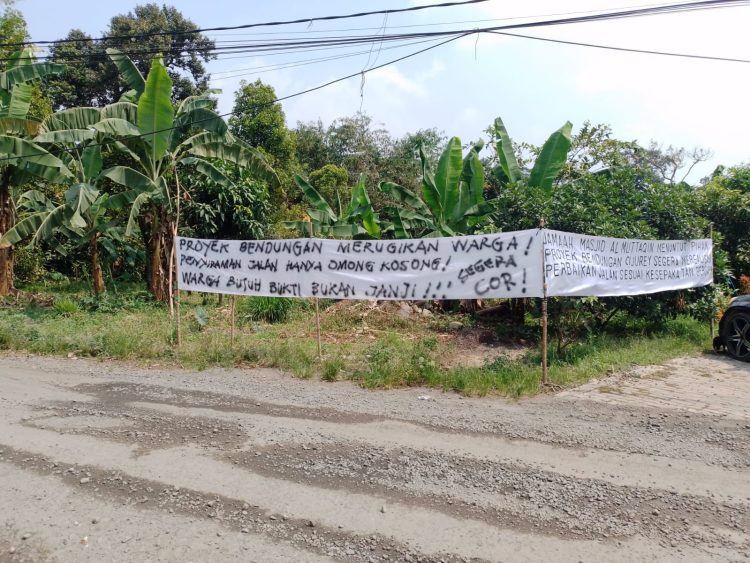 PROYEK BENDUNGAN MERUGIKAN WARGA!
PENYIRAMAN JALAN HANYA OMONG KOSONG!
WARGA BUTUH BUKTI BUKAN JANJI!!!
SEGERA
COR!
JAMAAH MASJID AL MUTTAQIN MENUNTUT PIHAK
PROYEK BENDUNGAN CIJUREY SEGERA
PERBAIKAN JALAN SESUAI